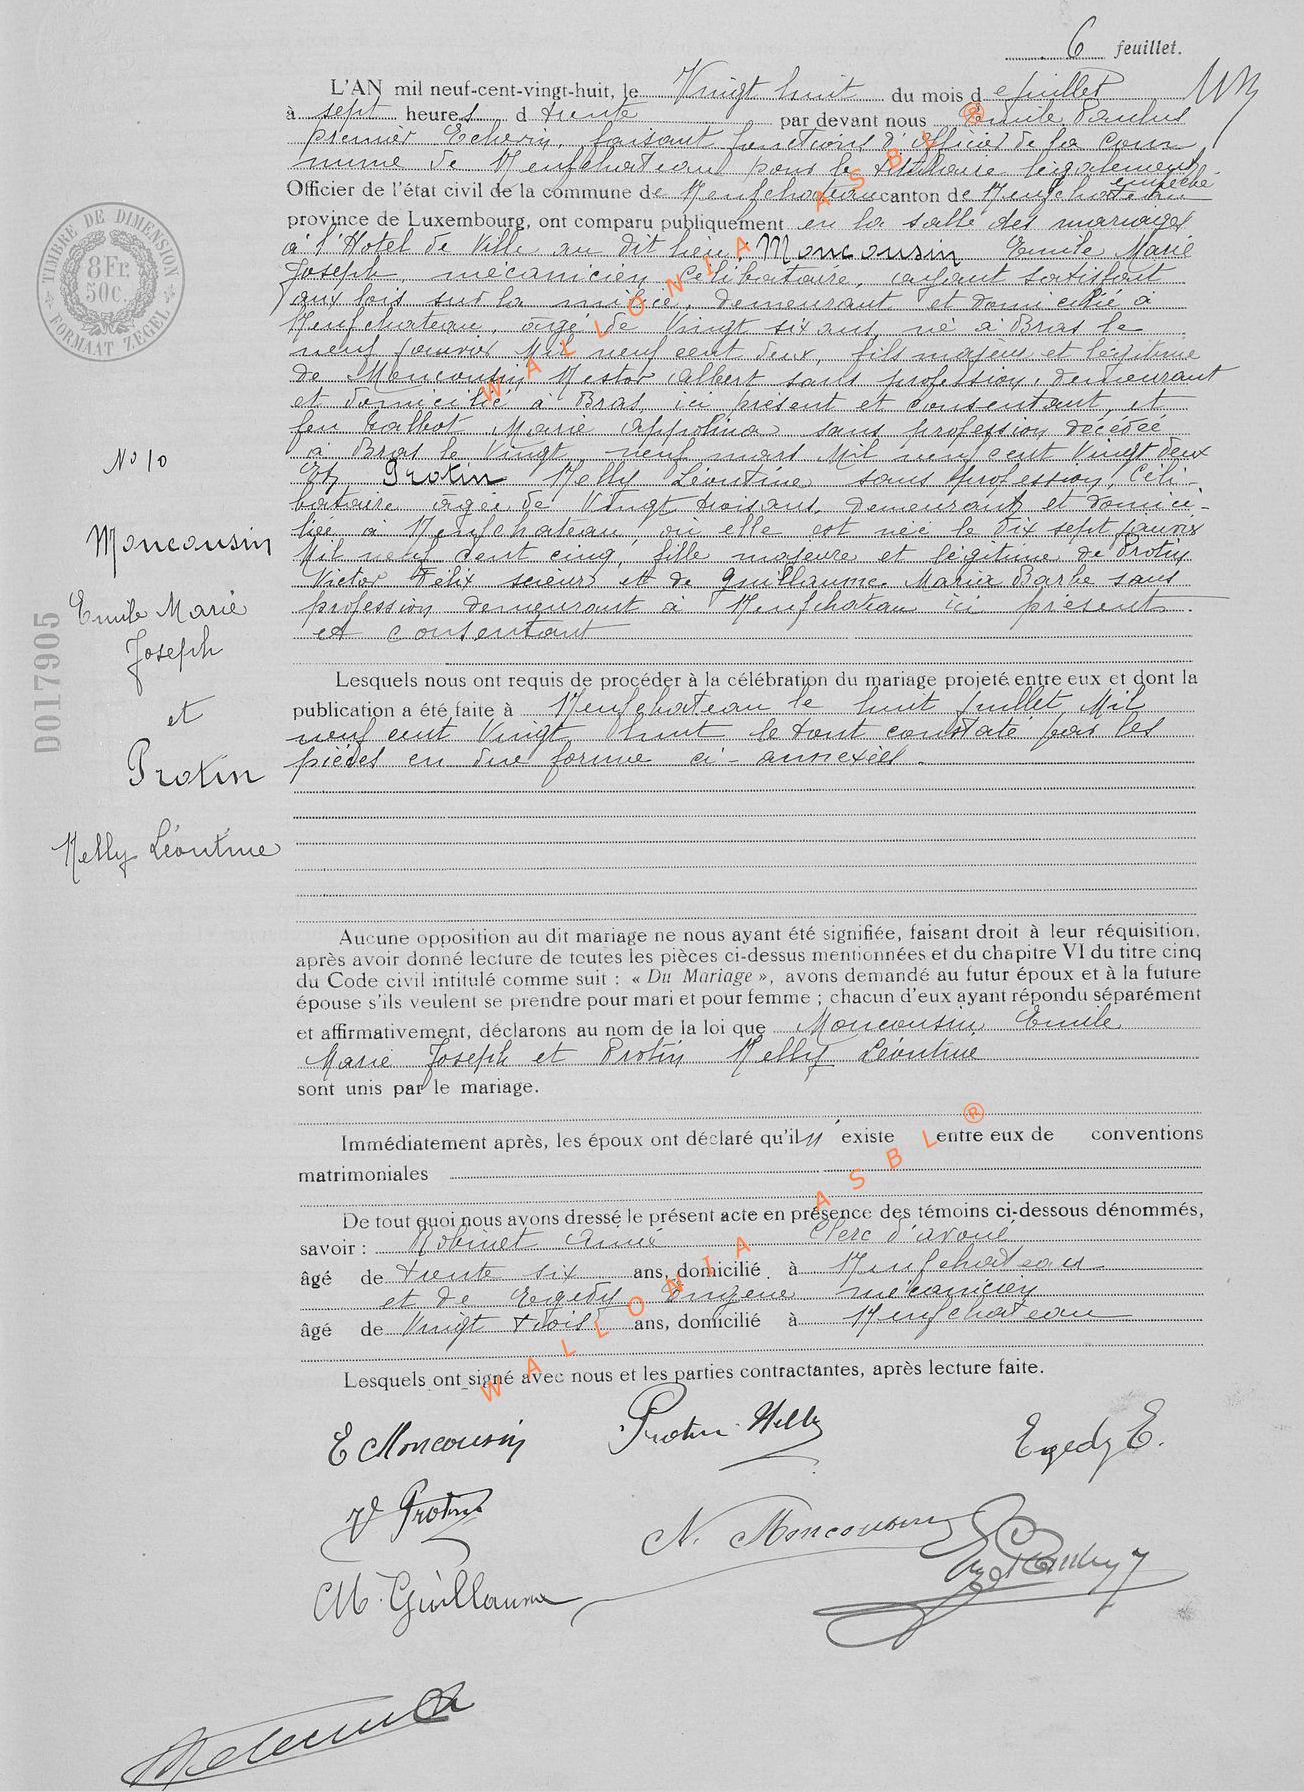 6 feuillet.
L'AN mil neuf-cent-vingt-huit, le Vingt huit du mois de juillet
à sept heures d trente par devant nous Emile Paulus
premier Echevin, faisant fonctions d'Officier de la Com
mune de Neufchateau pour le titulaire légalement
empêché
Officier de l'état civil de la commune de Neufchateau canton de Neufchateau
province de Luxembourg, ont comparu publiquement en la salle des mariages
à l'Hotel de Ville au dit lieu : Moncousin Emile Marie
Joseph mécanicien, célibataire, ayant satisfait
aux lois sur la milice, demeurant et domicilié à
Neufchateau, âgé de Vingt six ans, né à Bras le
neuf janvier Mil neuf cent deux, fils majeur et légitime
de Moncousin Nestor Albert sans profession, demeurant
et domicilié à Bras, ici présent et consentant, et
feu Galbot Marie Appolina sans profession décédée
à Bras le Vingt neuf mars Mil neuf cent Vingt deux
Et, Protin Nelly Léontine sans profession, céli-
bataire âgée de Vingt trois ans, demeurant et domici-
liée à Neufchateau, où elle est née le dix sept janvier
Mil neuf cent cinq, fille majeure et légitime de Protin
Victor Félix scieur et de Guillaume Maria Barbe sans
profession demeurant à Neufchateau ici présents
et consentant
TIMBRE DE DIMENSION
8 Fr.
50c.
FORMAAT ZEGEL
No 10
Moncousin
Emile Marie
Joseph
et
Protin
Nelly Léontine
D017905
Lesquels nous ont requis de procéder à la célébration du mariage projeté entre eux et dont la
publication a été faite à Neufchateau le huit juillet Mil
neuf cent Vingt huit le tout constaté par les
pièces en due forme ci-annexées.
Aucune opposition au dit mariage ne nous ayant été signifiée, faisant droit à leur réquisition,
après avoir donné lecture de toutes les pièces ci-dessus mentionnées et du chapitre VI du titre cinq
du Code civil intitulé comme suit : « Du Mariage », avons demandé au futur époux et à la future
épouse s'ils veulent se prendre pour mari et pour femme ; chacun d'eux ayant répondu séparément
et affirmativement, déclarons au nom de la loi que Moncousin Emile
Marie Joseph et Protin Nelly Léontine
sont unis par le mariage.
Immédiatement après, les époux ont déclaré qu'il n'existe entre eux de conventions
matrimoniales
De tout quoi nous avons dressé le présent acte en présence des témoins ci-dessous dénommés,
savoir : Robinet Aimé Clerc d'avoué
âgé de trente six ans, domicilié à Neufchateau
et de Egedy Eugène mécanicien
âgé de Vingt trois ans, domicilié à Neufchateau
Lesquels ont signé avec nous et les parties contractantes, après lecture faite.
E Moncousin
Protin Nelly
Egedy E.
V Protin
N. Moncousin
M. Guillaume
WALLONIA ASBL ®
WALLONIA ASBL ®